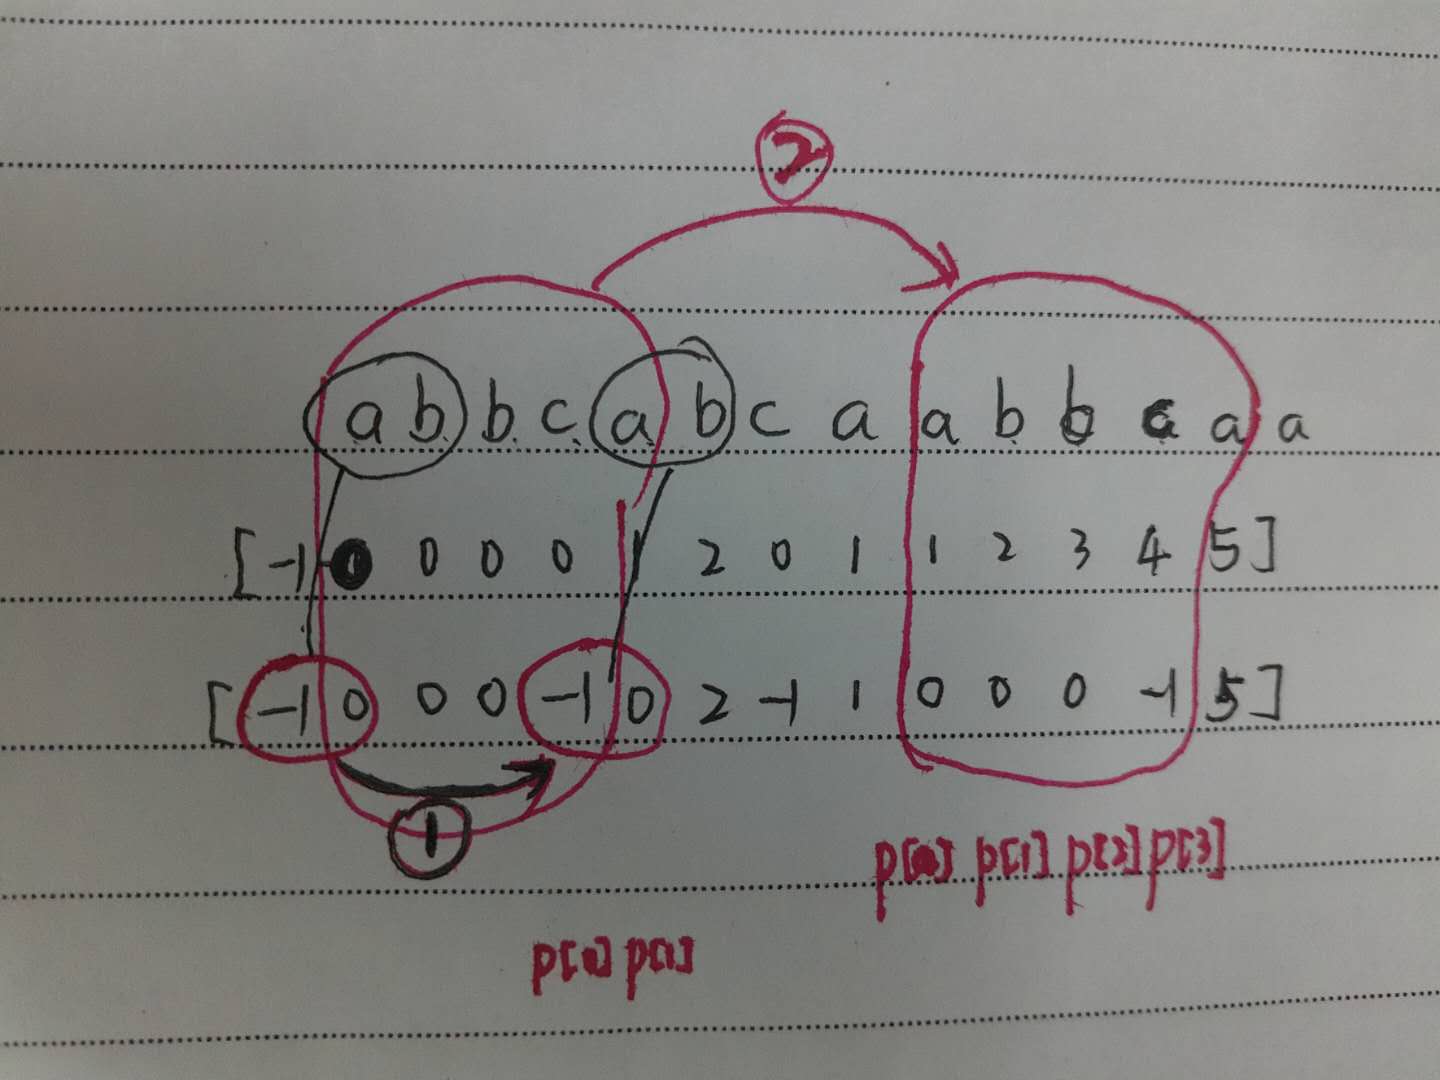 ②
a b b c a b c a a b b c a a
[ -1 0 0 0 0 1 2 0 1 1 2 3 4 5 ]
[ -1 0 0 0 -1 0 2 -1 1 0 0 0 -1 5 ]
①
p[0] p[1] p[2] p[3]
p[0] p[1]